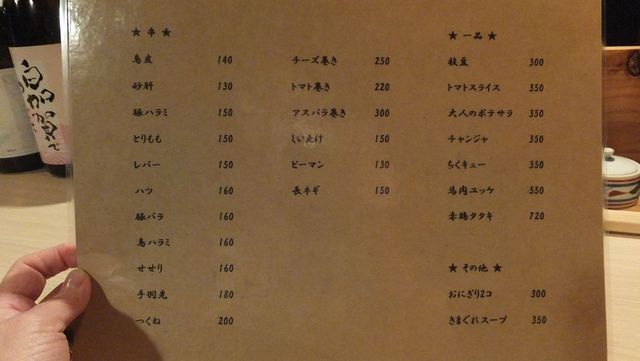 ★ 串 ★
鳥皮 140
砂肝 130
豚ハラミ 150
とりもも 150
レバー 150
ハツ 160
豚バラ 160
鳥ハラミ 160
せせり 160
手羽先 180
つくね 200
チーズ巻き 250
トマト巻き 220
アスパラ巻き 300
しいたけ 150
ピーマン 130
長ネギ 150
★ 一品 ★
枝豆 300
トマトスライス 350
大人のポテサラ 350
チャンジャ 350
ちくキュー 350
馬肉ユッケ 550
赤鶏タタキ 720
★ その他 ★
おにぎり2コ 300
きまぐれスープ 350